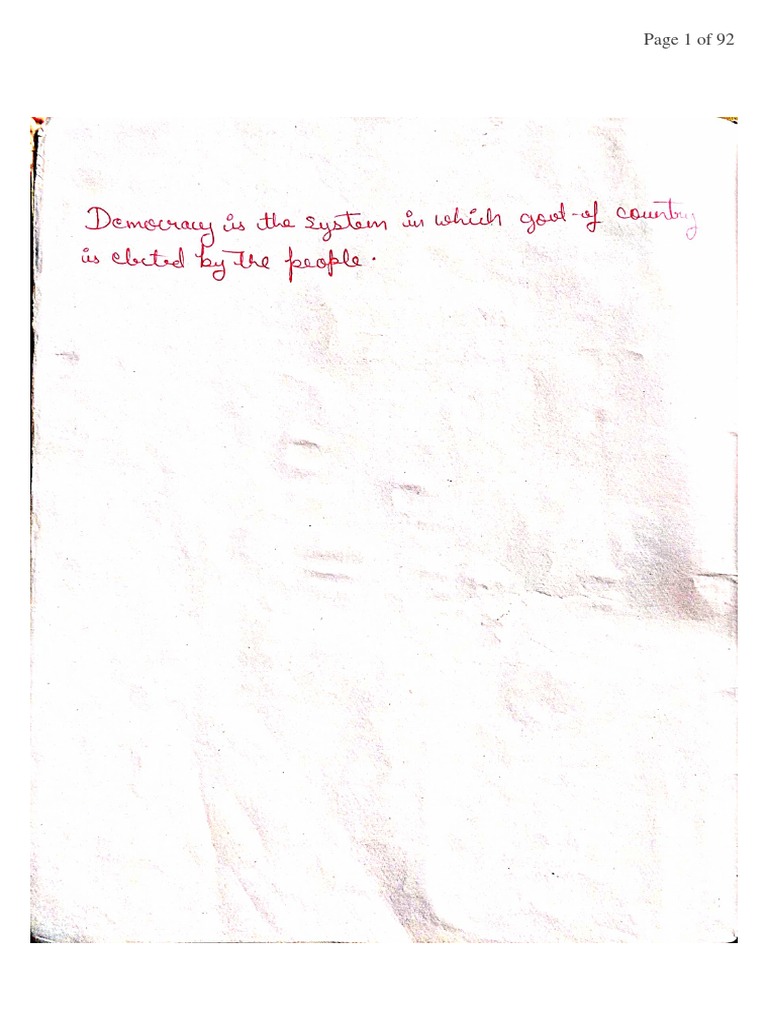 Page 1 of 92
Democracy is the system in which govt-of country
is elected by the people.